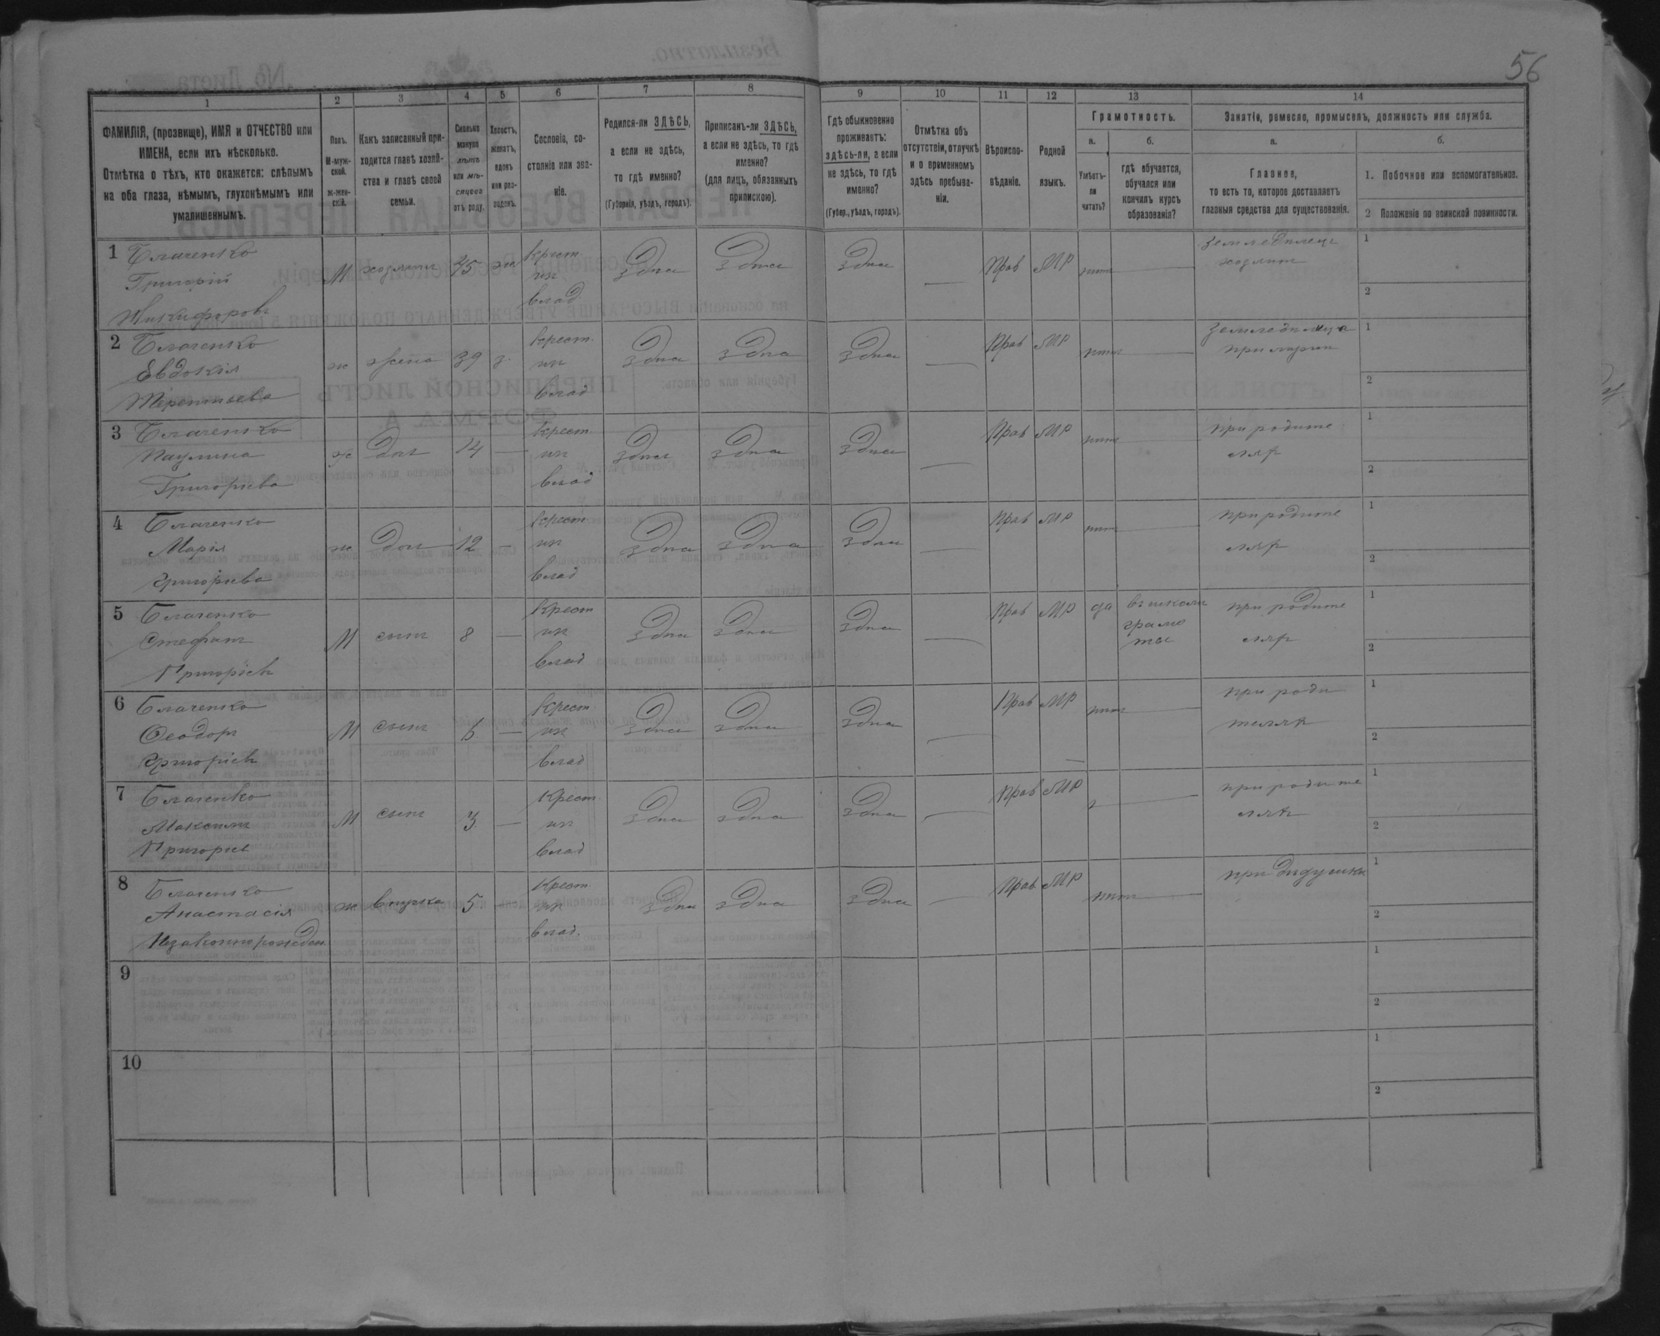 56
1 2 3 4 5 6 7 8 9 10 11 12 13 14
ФАМИЛІЯ, (прозвище), ИМЯ и ОТЧЕСТВО или
ИМЕНА, если ихъ нѣсколько.
Отмѣтка о тѣхъ, кто окажется: слѣпымъ
на оба глаза, нѣмымъ, глухонѣмымъ или
умалишеннымъ.
Полъ.
М-муж-
ской.
ж-жен-
скій.
Какъ записанный при-
ходится главѣ хозяй-
ства и главѣ своей
семьи.
Сколько
минуло
лѣтъ
или мѣ-
сяцевъ
отъ роду.
Холостъ,
женатъ,
вдовъ
или раз-
веденъ.
Сословіе, со-
стояніе или зва-
ніе.
Родился-ли ЗДѢСЬ,
а если не здѣсь,
то гдѣ именно?
(Губернія, уѣздъ, городъ).
Приписанъ-ли ЗДѢСЬ,
а если не здѣсь, то гдѣ
именно?
(для лицъ, обязанныхъ
припискою).
Гдѣ обыкновенно
проживаетъ:
здѣсь-ли, а если
не здѣсь, то гдѣ
именно?
(Губер., уѣздъ, городъ).
Отмѣтка объ
отсутствіи, отлучкѣ
и о временномъ
здѣсь пребыва-
ніи.
Вѣроиспо-
вѣданіе.
Родной
языкъ.
Грамотность.
а.
Умѣетъ-
ли
читать?
б.
гдѣ обучается,
обучался или
кончилъ курсъ
образованія?
Занятіе, ремесло, промыселъ, должность или служба.
а.
Главное,
то есть то, которое доставляетъ
главныя средства для существованія.
б.
1. Побочное или вспомогательное.
2 Положеніе по воинской повинности.
1
Григорій
Никифоровъ
М хозяинъ 45 ж
Крест
влад
здѣсь здѣсь здѣсь — Прав МР нѣтъ —
земледѣлецъ
хозяинъ
1
2
2
Евдокія
Терентьева
ж жена 39 з.
Крест
влад
здѣсь здѣсь здѣсь — Прав МР нѣтъ —
при мужѣ
1
2
3
Григорьева
ж доч 14 —
Крест
влад
здѣсь здѣсь здѣсь — Прав МР нѣтъ —
при родите
ляхъ
1
2
4
Марія
Григорьева
ж доч 12 —
Крест
влад
здѣсь здѣсь здѣсь — Прав МР нѣтъ —
при родите
ляхъ
1
2
5
Стефанъ
Григорьевъ
М сынъ 8 —
Крест
влад
здѣсь здѣсь здѣсь — Прав МР да
въ школѣ
грамо
ты
при родите
ляхъ
1
2
6
Ѳеодоръ
Григорьевъ
М сынъ 6 —
Крест
влад
здѣсь здѣсь здѣсь — Прав МР нѣтъ —
при роди
теляхъ
1
2
7
Максимъ
М сынъ 3 —
Крест
влад
здѣсь здѣсь здѣсь — Прав МР —
при родите
ляхъ
1
2
8
Анастасія
ж внучка 5 —
Крест
влад.
здѣсь здѣсь здѣсь — Прав МР нѣтъ —
при дѣдушкѣ
1
2
9
1
2
10
1
2